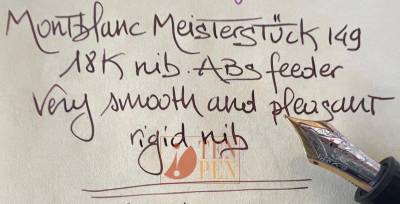 Montblanc Meisterstück 149
18K nib. ABS feeder
Very smooth and pleasant
rigid nib
TEN
PEN